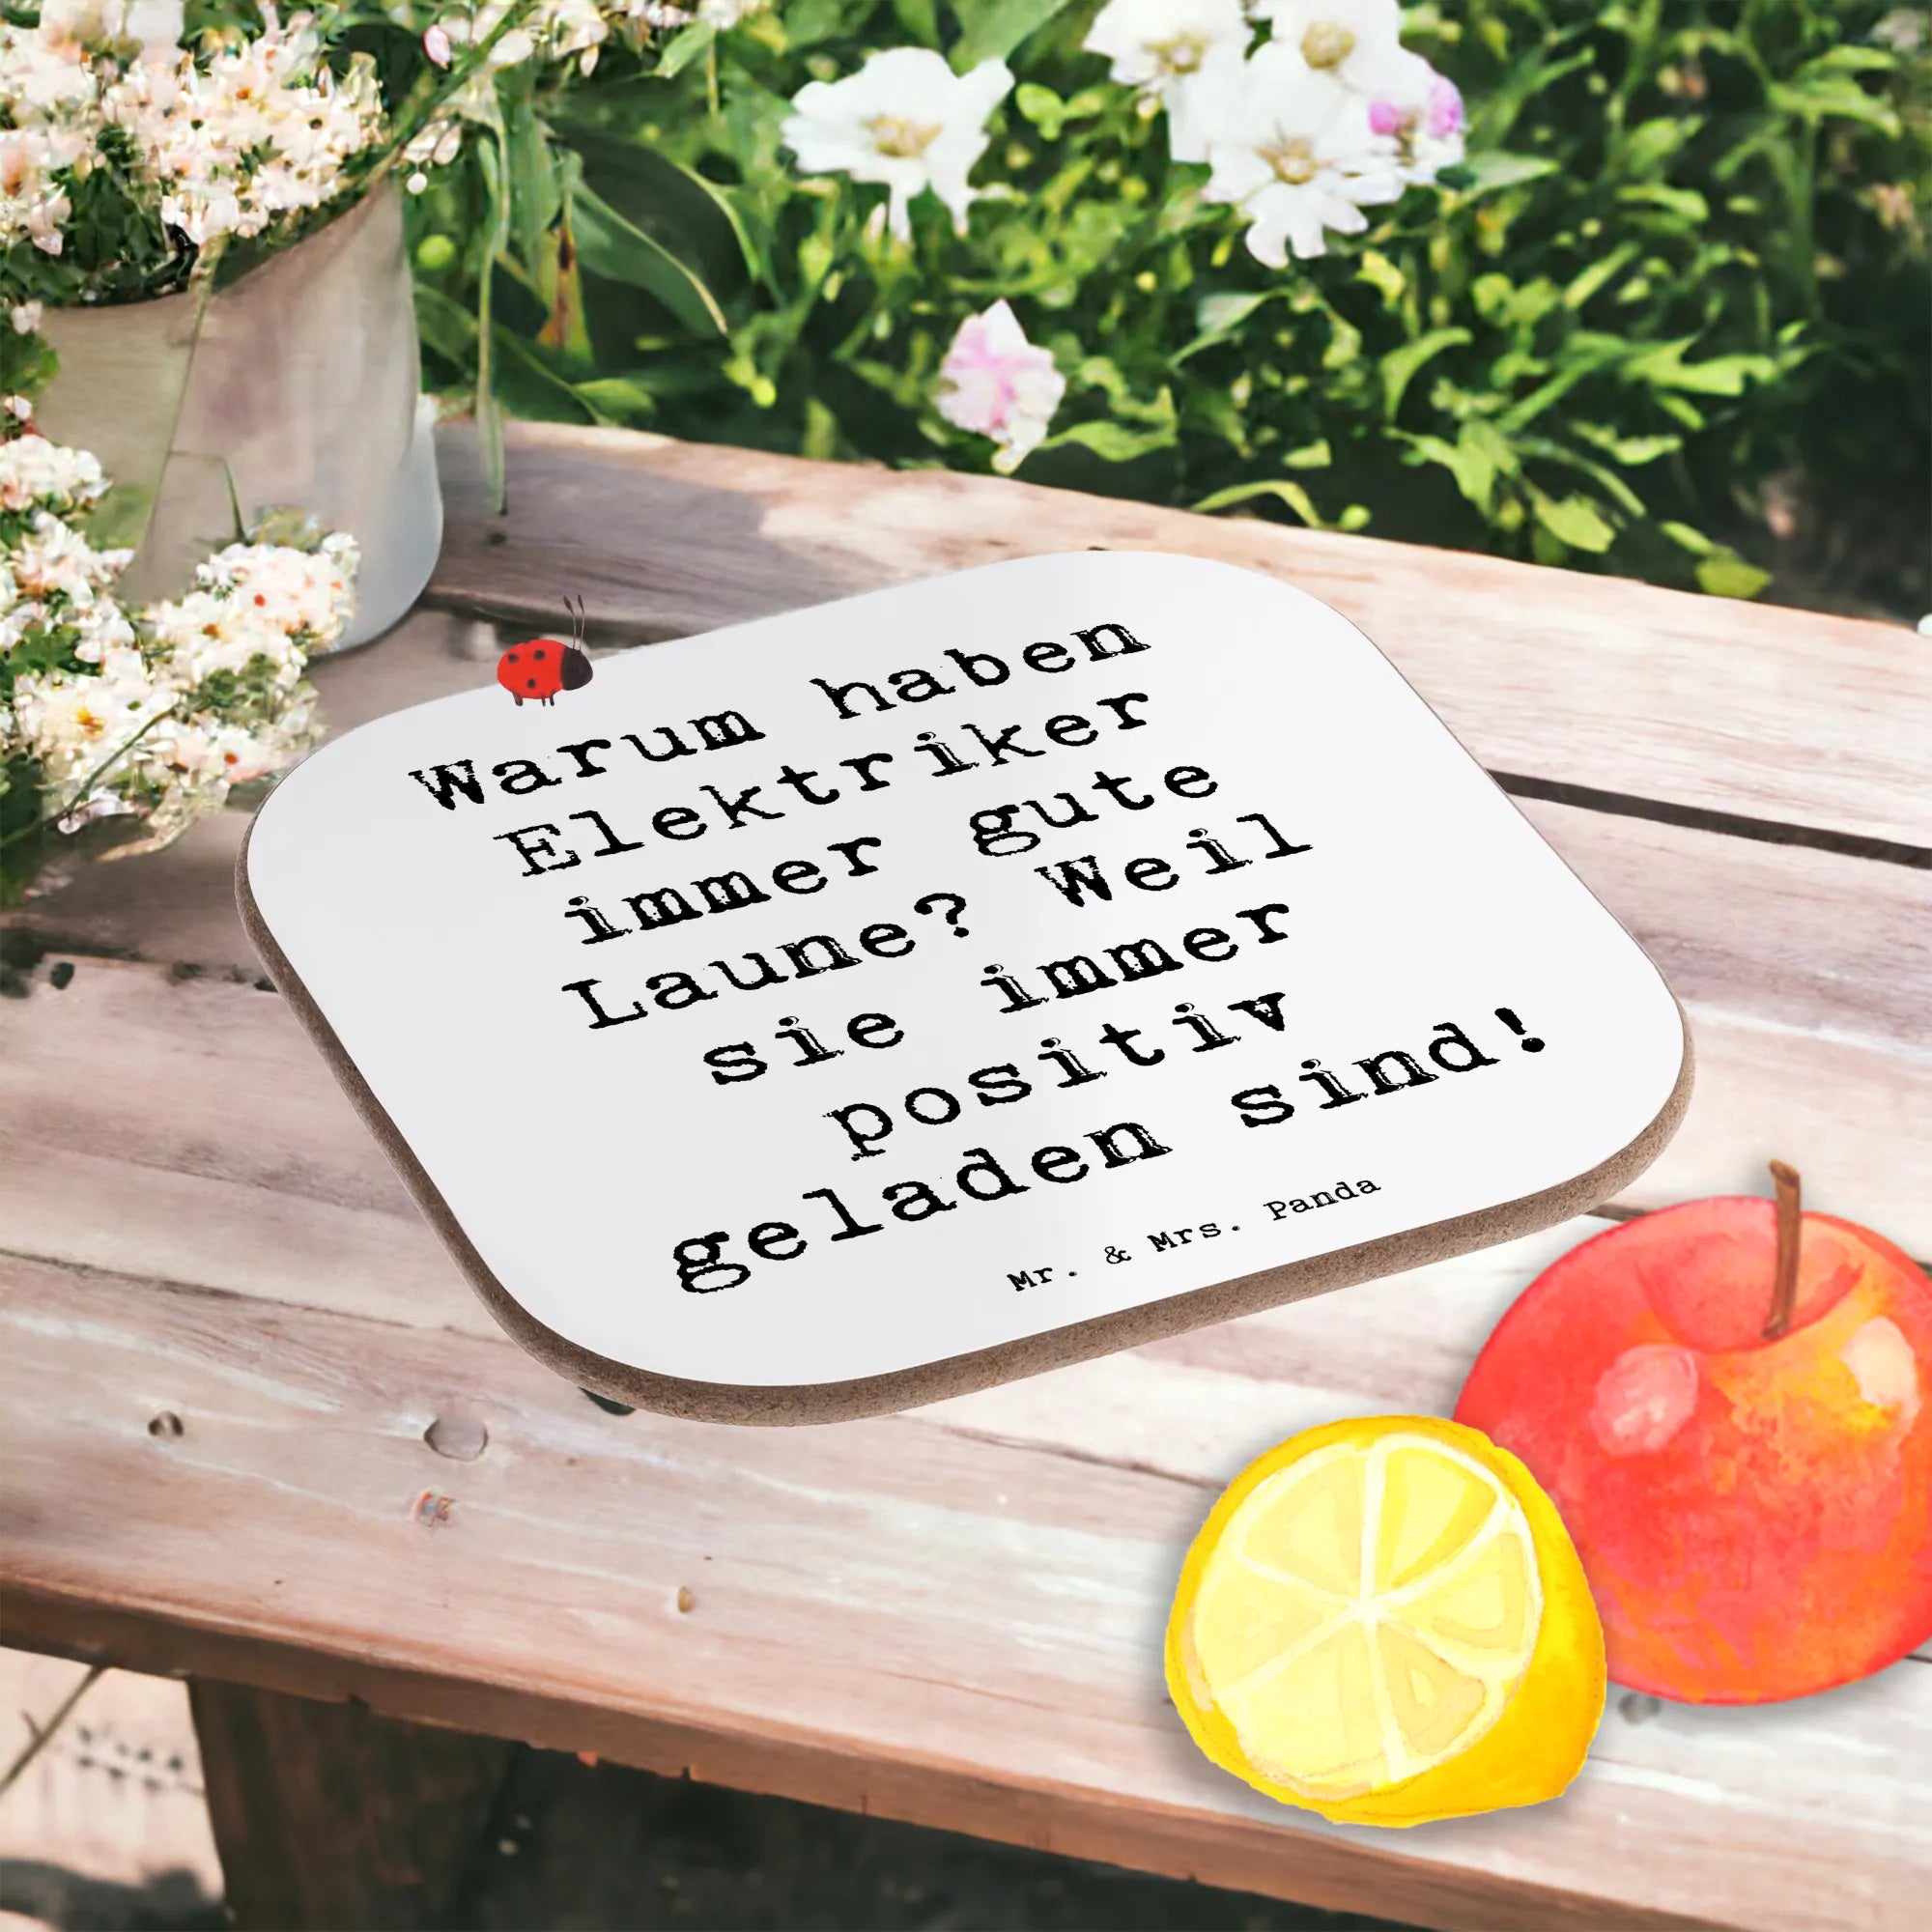 Warum haben
Elektriker
immer gute
Laune? Weil
sie immer
positiv
geladen sind!
Mr. & Mrs. Panda